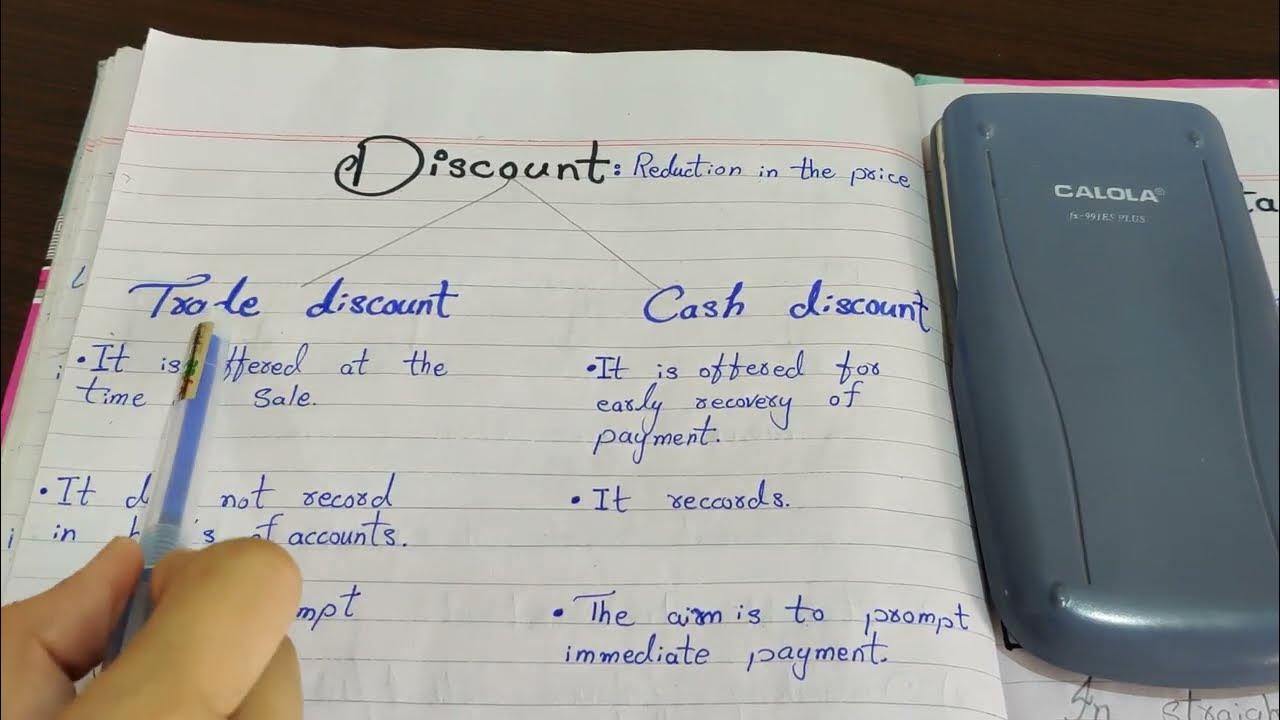 Discount: Reduction in the price
Trade discount
• It is offered at the
time Sale.
• It not record
in of accounts.
Cash discount
• It is offered for
early recovery of
payment.
• It reccords.
• The aim is to prompt
immediate payment.
CALOLA®
fx-991ES PLUS
In straigh